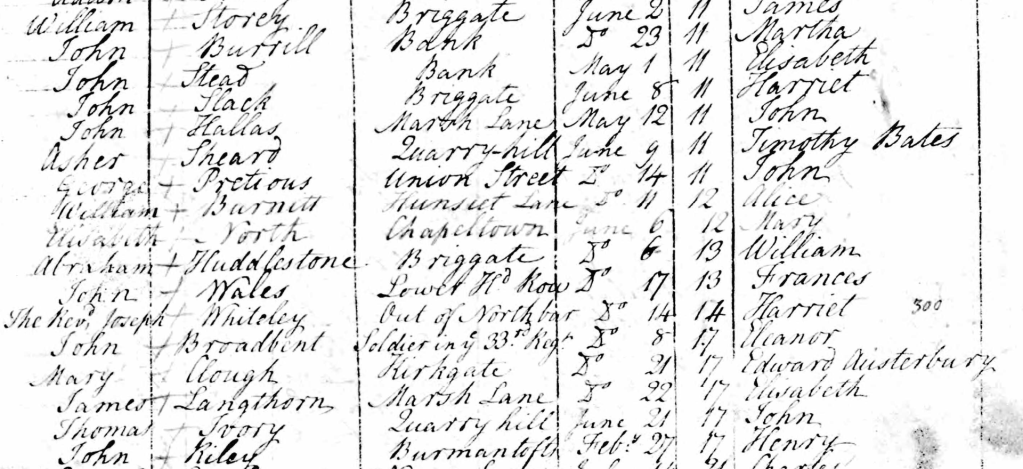 William + Storey Briggate June 2 11 James
John + Burrill Bank Do 23 11 Martha
John + Stead Bank May 1 11 Elisabeth
John + Slack Briggate June 8 11 Harriet
John + Hallas Marsh Lane May 12 11 John
Asher + Sheard Quarry-hill June 9 11 Timothy Bates
George + Pretious Union Street Do 14 11 John
William + Burnitt Hunslet Lane Do 11 12 Alice
Elisabeth + North Chapeltown June 6 12 Mary
Abraham + Huddlestone Briggate Do 6 13 William
John + Wales Lower Hd Row Do 17 13 Frances
The Revd Joseph + Whiteley Out of Northbar Do 14 14 Harriet 300
John + Broadbent Soldier in ye 33rd Regt Do 8 17 Eleanor
Mary Clough Kirkgate Do 21 17 Edward Austerbury
James + Langthorn Marsh Lane Do 22 17 Elisabeth
Thomas + Ivory Quarry hill June 21 17 John
John + Kiley Burmantofts Feby 27 17 Henry
Charles